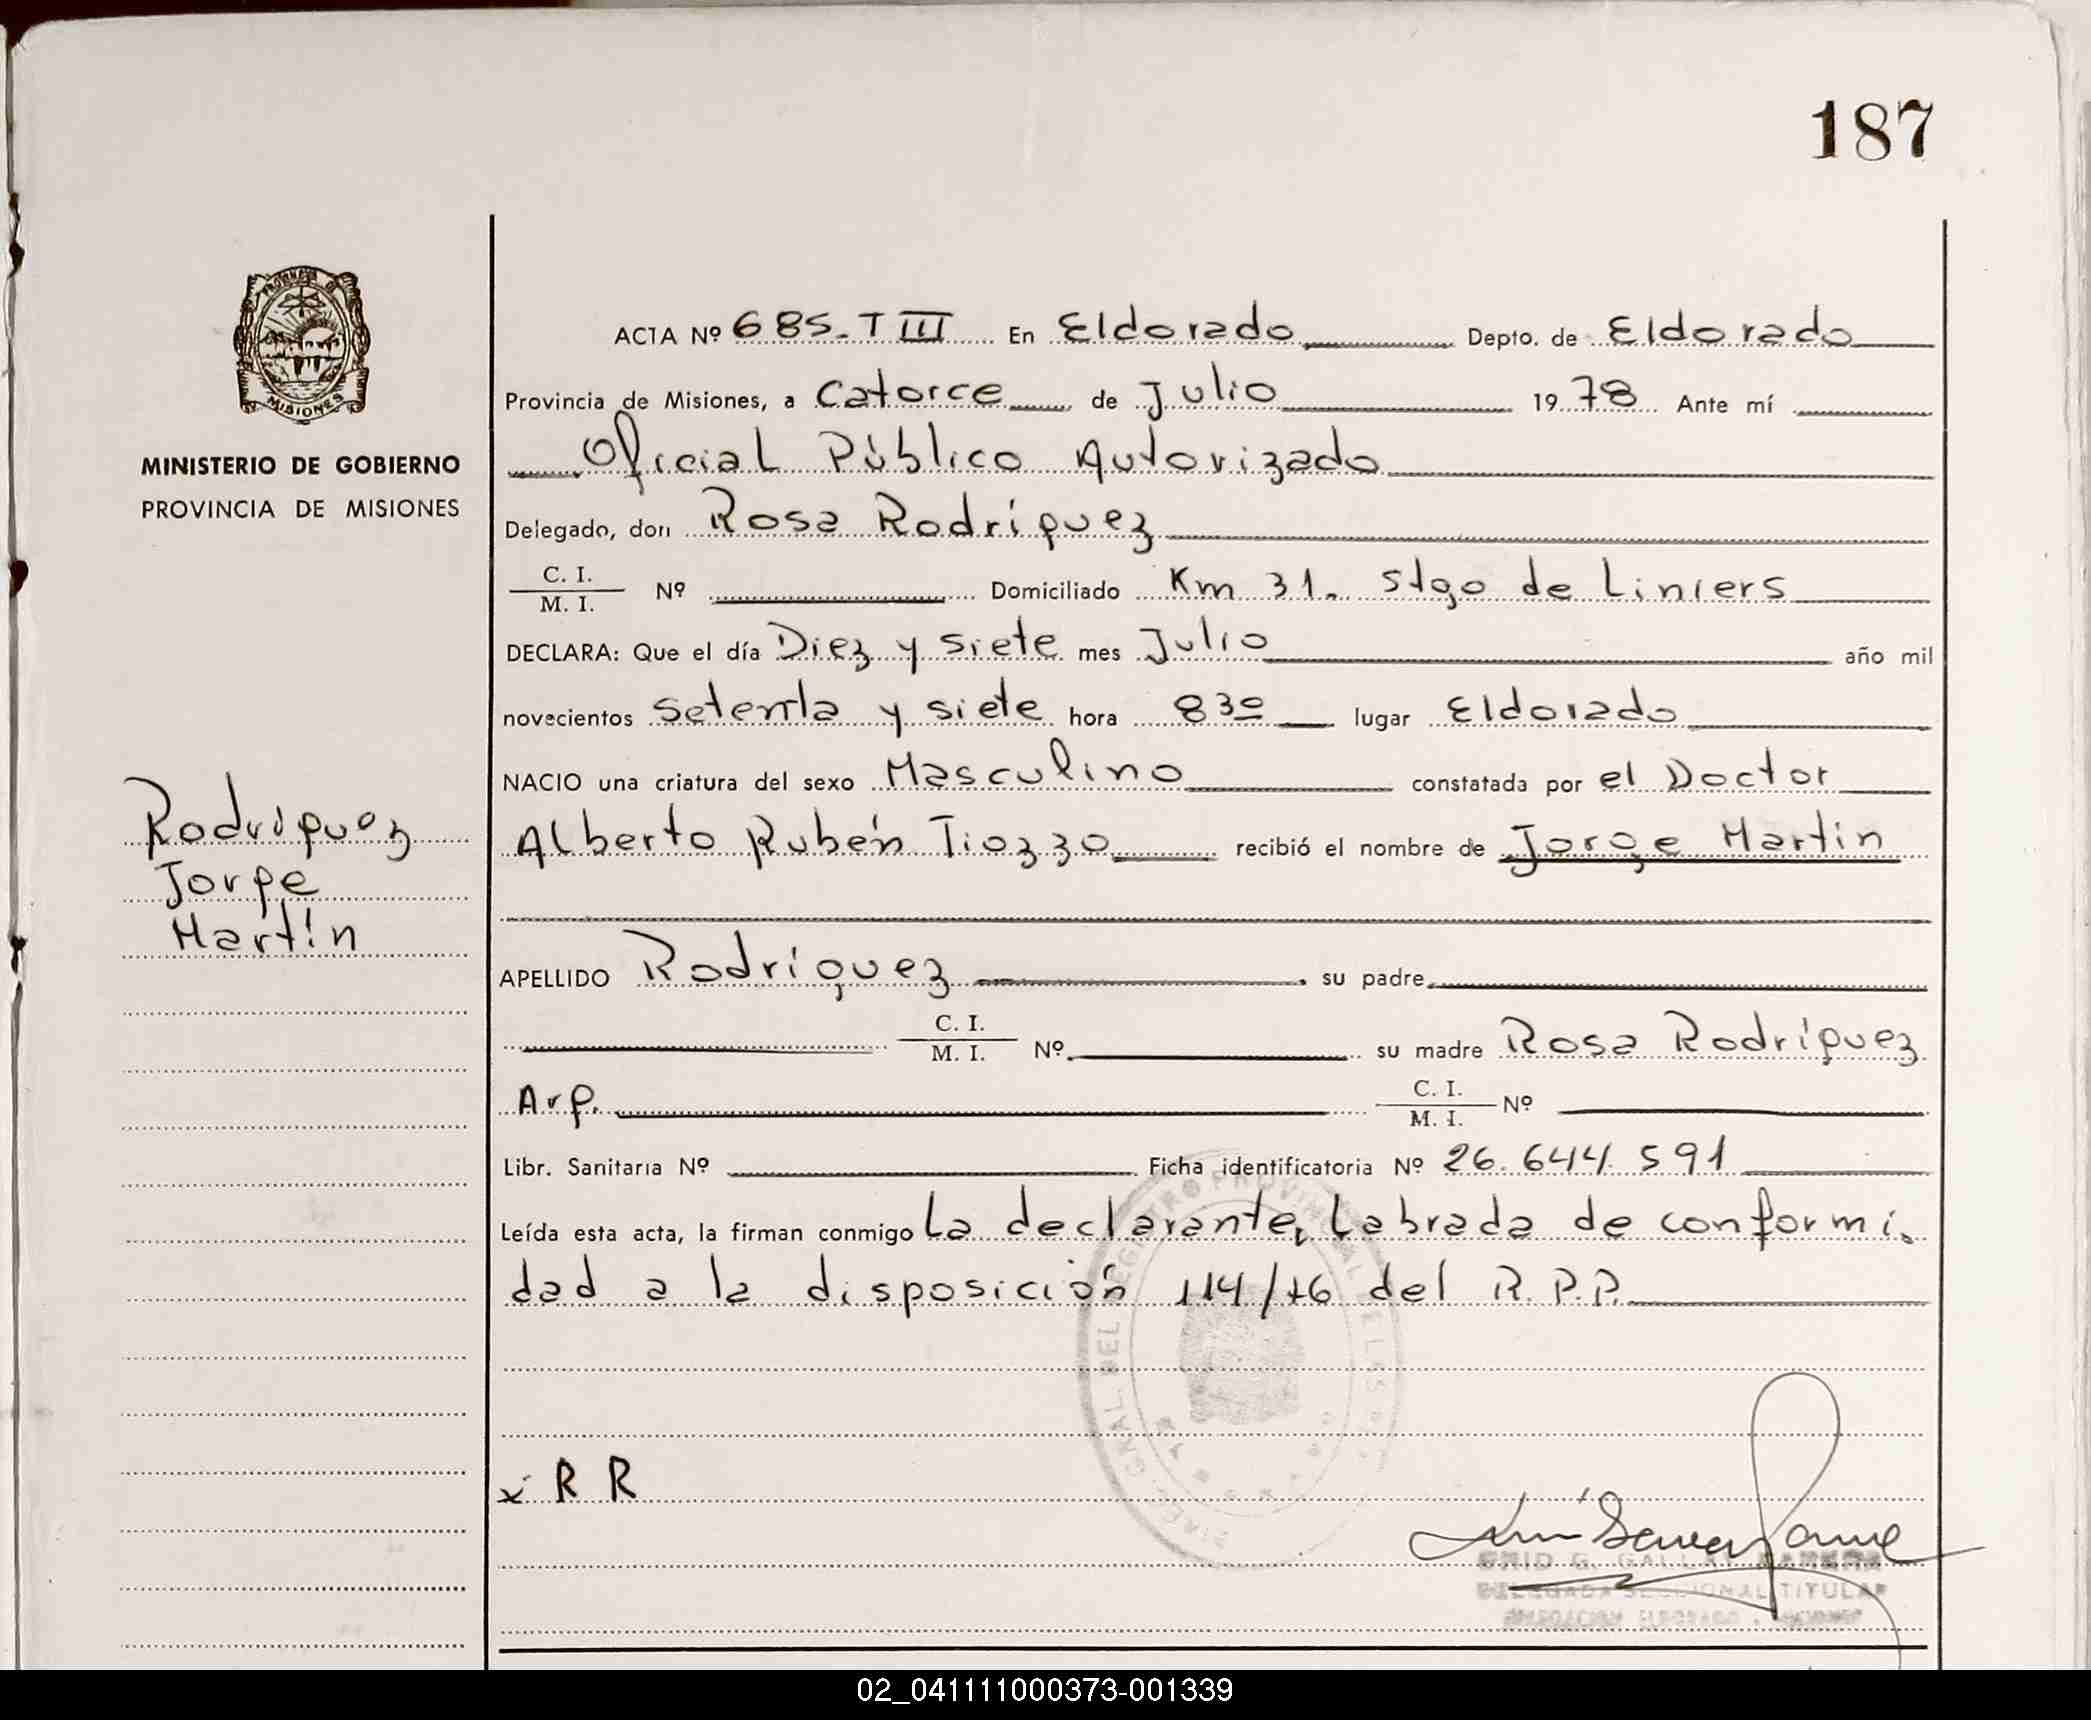 187
MINISTERIO DE GOBIERNO
PROVINCIA DE MISIONES
Rodriguez
Jorge
Martín
ACTA Nº 685-T III En Eldorado Depto. de Eldorado
Provincia de Misiones, a Catorce de Julio 1978 Ante mí
Oficial Público Autorizado
Delegado, don Rosa Rodríguez
C. I.
M. I. Nº Domiciliado Km 31. Stgo de Liniers
DECLARA: Que el día Diez y siete mes Julio año mil
novecientos setenta y siete hora 8 30 lugar Eldorado
NACIO una criatura del sexo Masculino constatada por el Doctor
Alberto Rubén Tiozzo recibió el nombre de Jorge Martin
APELLIDO Rodríguez su padre
C. I.
M. I. Nº su madre Rosa Rodríguez
Arg. C. I.
M. I. Nº
Libr. Sanitaria Nº Ficha identificatoria Nº 26.644.591
Leída esta acta, la firman conmigo La declarante, Labrada de conformi-
dad a la disposición 114/76 del R.P.P.
x R R
DELEGADA SECCIONAL TITULAR
02_041111000373-001339